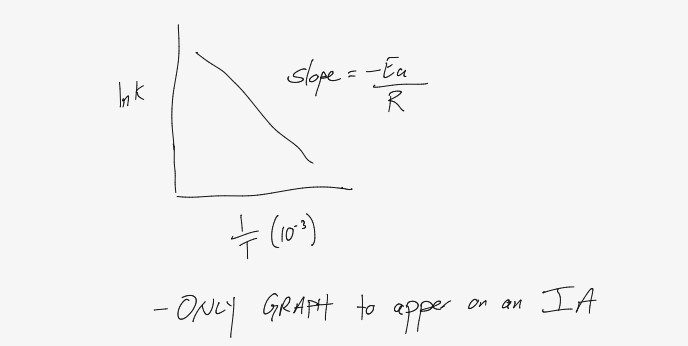 slope = -Ea/R
ln K
1/T (10⁻³)
- ONLY GRAPH to apper on an IA